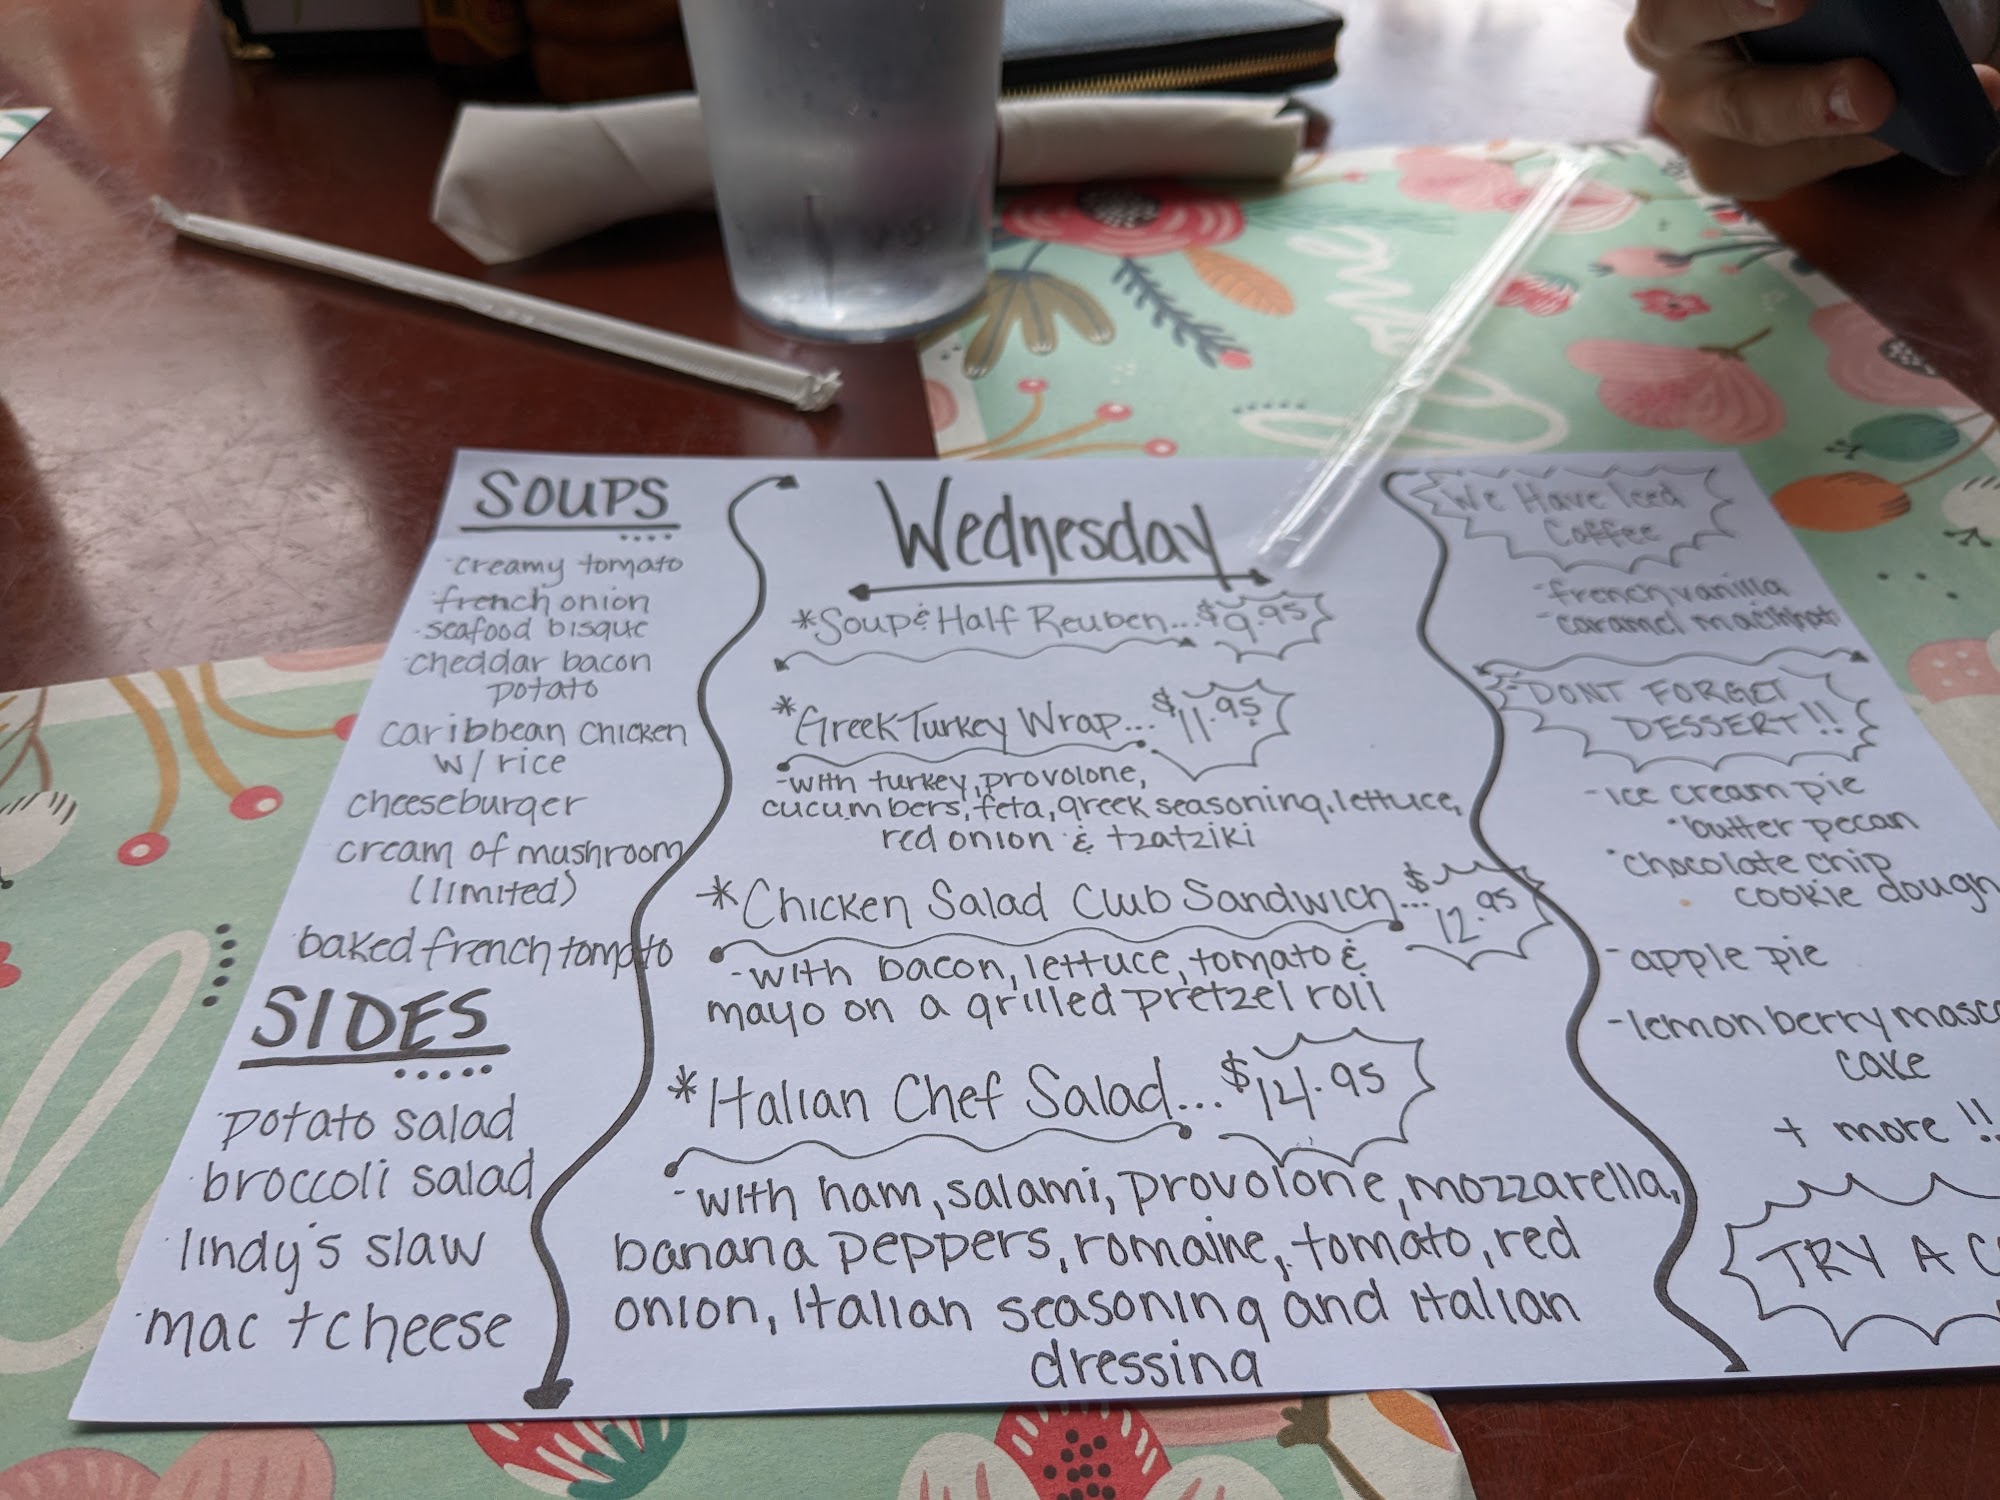 SOUPS
-creamy tomato
french onion
-seafood bisque
cheddar bacon
potato
caribbean chicken
w/ rice
cheeseburger
cream of mushroom
(limited)
baked french tomato
SIDES
potato salad
broccoli salad
lindy's slaw
mac + cheese
Wednesday
*Soup & Half Reuben...$9.95
*Greek Turkey Wrap...$11.95
-with turkey, provolone,
cucumbers, feta, greek seasoning, lettuce,
red onion & tzatziki
*Chicken Salad Club Sandwich...$12.95
-with bacon, lettuce, tomato &
mayo on a grilled pretzel roll
*Italian Chef Salad...$14.95
-with ham, salami, provolone, mozzarella,
banana peppers, romaine, tomato, red
onion, italian seasoning and italian
dressing
We Have Iced
Coffee
-french vanilla
-caramel
-DONT FORGET
DESSERT!!
-ice cream pie
·butter pecan
·chocolate chip
cookie dough
-apple pie
-lemon berry masc
cake
+ more !!
TRY A C